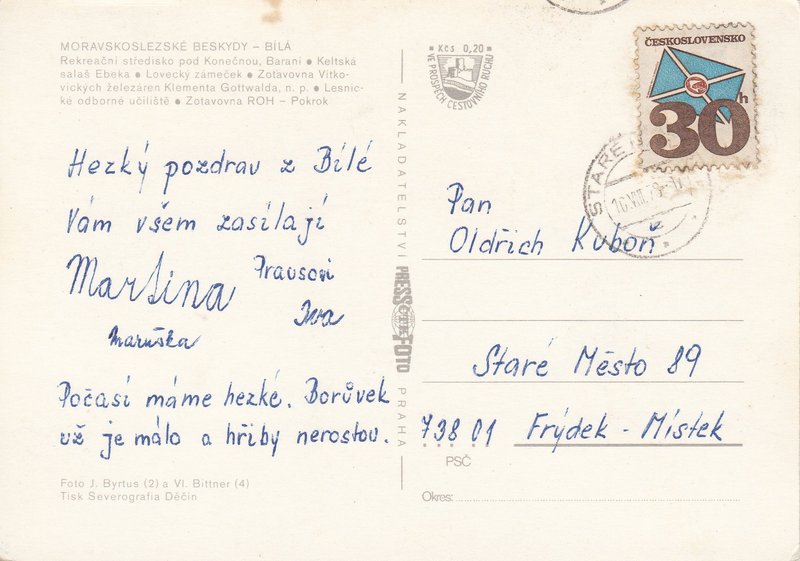 MORAVSKOSLEZSKÉ BESKYDY – BÍLÁ
Rekreační středisko pod Konečnou, Barani • Keltská
salaš Ebeka • Lovecký zámeček • Zotavovna Vítko-
vických železáren Klementa Gottwalda, n. p. • Lesnic-
ké odborné učiliště • Zotavovna ROH – Pokrok
Hezký pozdrav z Bílé
Vám všem zasílají
Martina Prausovi
Iva
Maruška
Počasí máme hezké. Borůvek
už je málo a hřiby nerostou.
Foto J. Byrtus (2) a Vl. Bittner (4)
Tisk Severografia Děčín
NAKLADATELSTVÍ PRESSFOTO PRAHA
Kčs 0,20
VE PROSPĚCH CESTOVNÍHO RUCHU
ČESKOSLOVENSKO
30h
STARÉ
16.VIII.79
Pan
Oldřich Kuboň
Staré Město 89
738 01 Frýdek - Místek
PSČ
Okres: